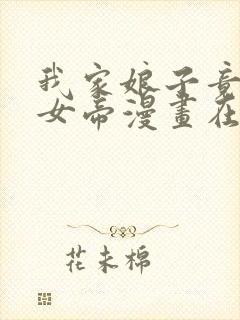 我家娘子竟
女帝漫畫在
花未棉